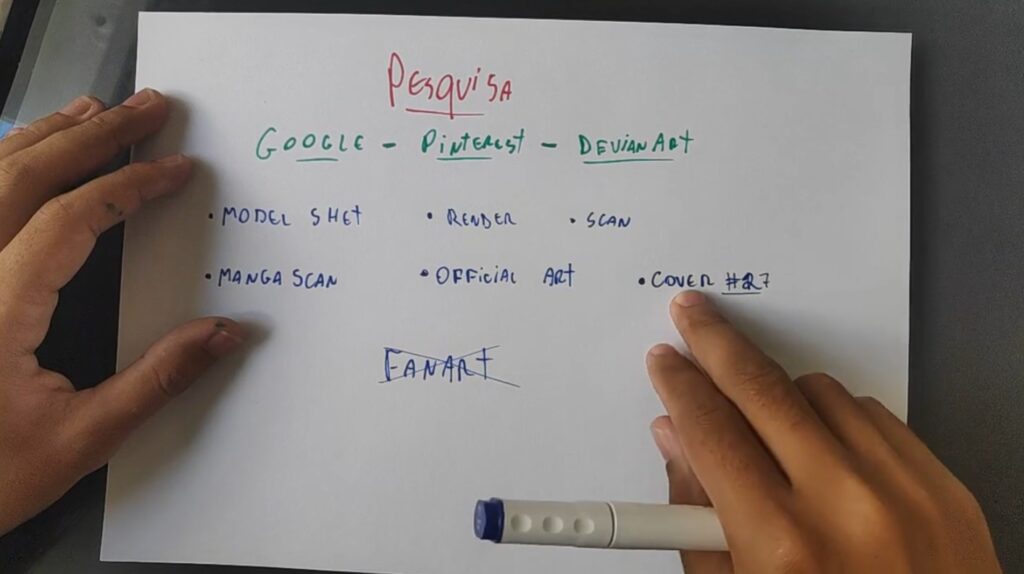 PESQUISA
GOOGLE - PINTEREST - DEVIANART
• MODEL SHET • RENDER • SCAN
• MANGA SCAN • OFFICIAL ART • COVER #27
FANART